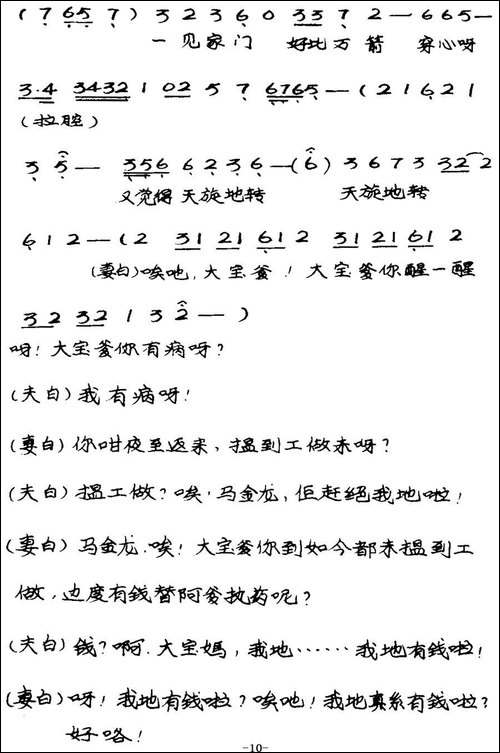 (7 6 5 7) 3 2 3 6 0 3 3 7 2 — 6 6 5 —
一见家门 好比万箭 穿心呀
3·4 3 4 3 2 1 0 2 5 7 6 7 6 5 — (2 1 6 2 1
(拉腔)
3 5 — 3 5 6 6 2 3 6 — (6) 3 6 7 3 3 2 2
又觉得天旋地转 天旋地转
6 1 2 — (2 3 1 2 1 6 1 2 3 1 2 1 6 1 2
(妻白)唉吔,大宝爹!大宝爹你醒一醒
3 2 3 2 1 3 2 — )
呀!大宝爹你有病呀?
(夫白)我有病呀!
(妻白)你咁夜至返来,揾到工做未呀?
(夫白)揾工做?唉,马金龙,佢赶绝我地啦!
(妻白)马金龙.唉!大宝爹你到如今都未揾到工
做,边度有钱替阿爹执药呢?
(夫白)钱?啊.大宝妈,我地……我地有钱啦!
(妻白)呀!我地有钱啦?唉吔!我地真系有钱啦?
好咯!
-10-